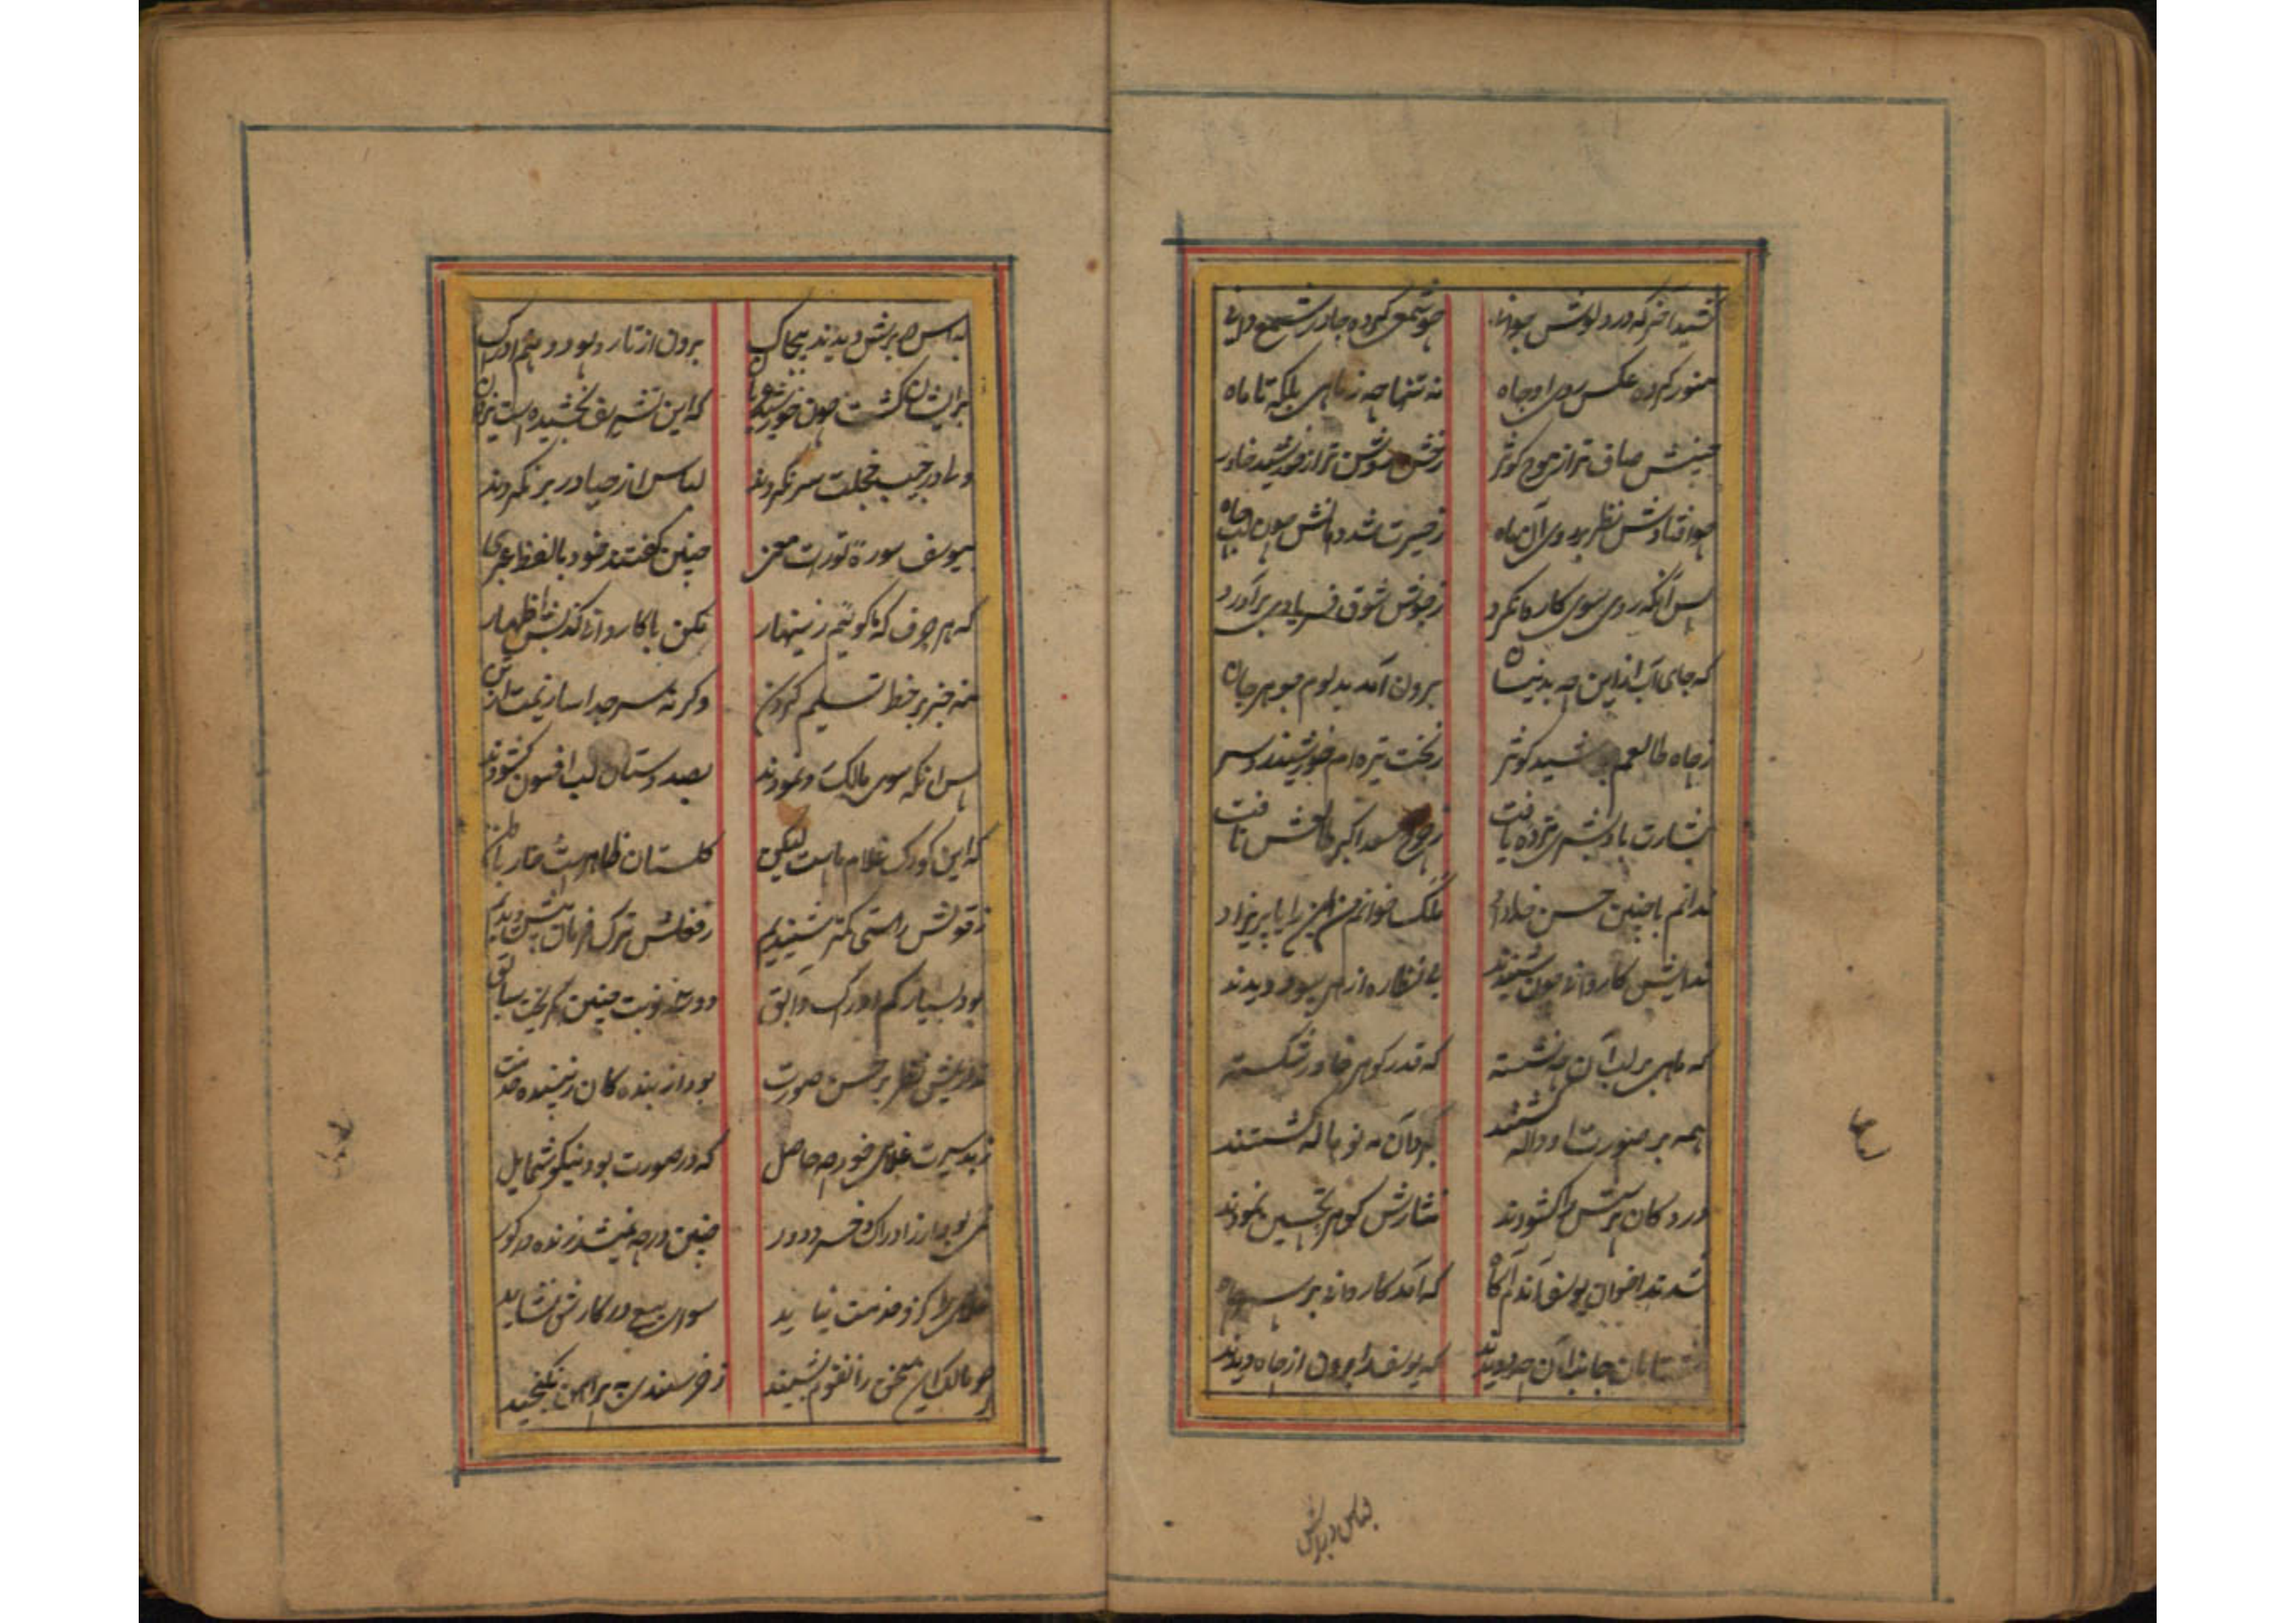 منور کرده عکس روی او چاه نه تنها چه ز ماهی بلکه تا ماه
جبینش صاف تر از موج کوثر رخش روشن تر از خورشید خاور
چو افتادش نظر بر روی آن ماه ز حیرت شد دهانش چون لب چاه
پس آنکه روی سوی کاروان کرد ز جوش شوق فریادی برآورد
که جای آب ازین چه بدینسان برون آمد بدلوم جوهر جان
ز چاه طالعم جوشید کوثر ز بخت تیره ام خورشید زد سر
بشارت باد بشری مژده یافت ز برج سعد اکبر طالعش تافت
ندانم با چنین حسن خداداد ملک خوانم من این را یا پریزاد
ندایش کاروانی چون شنیدند پی نظاره از هر سو دویدند
که ماهی بر لب آن چه نشسته که قدر گوهر خاور شکسته
همه بر صورت او واله گشتند بگرد آن مه نو هاله گشتند
در دکان پرسش را گشودند نثارش گوهر تحسین نمودند
شدند اخوان یوسف آندم آگاه که آمد کاروانی بر سر چاه
شتابان جانب آن چه دویدند که یوسف را برون از چاه دیدند
لباس در برش
لباس در برش دیدند بیچاک برون از تار و پود وهم و ادراک
بر ایشان گشت چون خورشید تابان که این تشریف بخشیده است یزدان
ولی در جیب خجلت سر نکردند لباس از حیا در بر نکردند
بیوسف سوره تورات معنی چنین گفتند خود با لفظ عبری
که هر حرفی که ما گوئیم زنهار مکن با کاروانی کذبش اظهار
بنه خنجر بر خط تسلیم گردن وگرنه سر جدا سازیمت از تن
پس آنکه سوی مالک رو نمودند بصد دستان لب افسون گشودند
که این کودک غلام ماست لیکن گلستان ظاهر است و خار باطن
ز قولش راستی کمتر شنیدیم ز فعلش ترک فرمان بیش دیدیم
بود بسیار کم ادراک و ابق دو سه نوبت چنین بگریخت سابق
نداریمش نظر بر حسن صورت بود از بنده کان زیبنده خدمت
ز بد سیرت غلامی خود چه حاصل که در صورت بود نیکو شمایل
نمی بود ار ز ادراک و خرد دور چنین در چه نمیشد زنده در گور
غلامی را کزو خدمت نیاید سوای بیع در کارش نشاید
چو مالک این سخن زان قوم بشنید ز خرسندی به پیراهن نگنجید